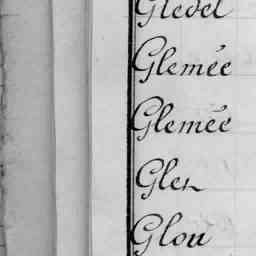 Gledel
Glemée
Glemée
Glez
Glou